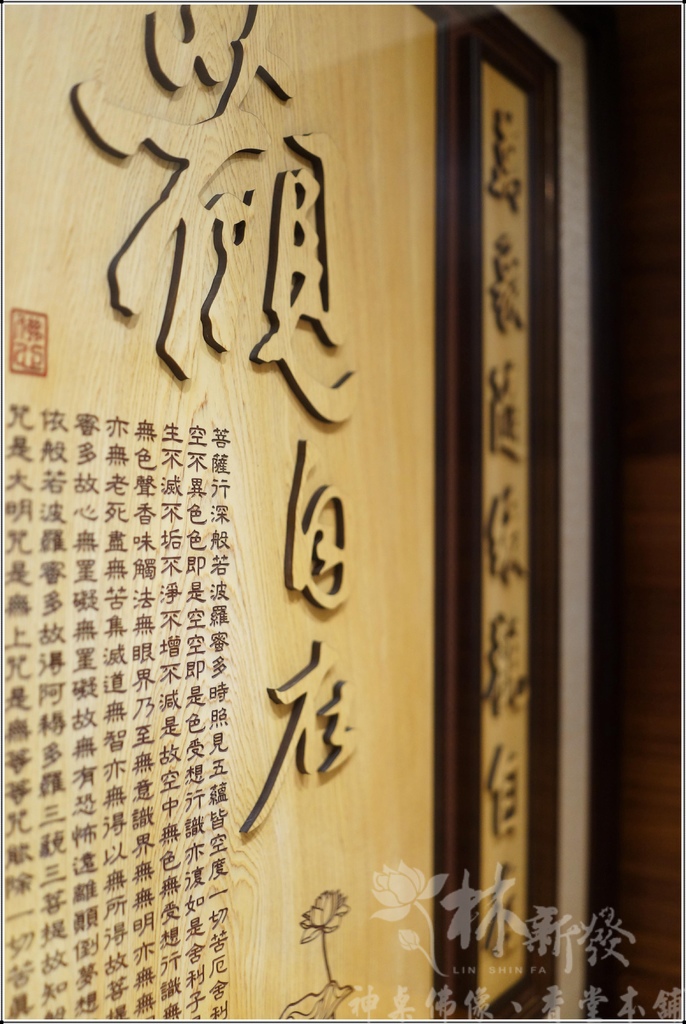 觀自在
菩薩行深般若波羅密多時照見五蘊皆空度一切苦厄舍利
空不異色色即是空空即是色受想行識亦復如是舍利子
生不滅不垢不淨不增不減是故空中無色無受想行識無
無色聲香味觸法無眼界乃至無意識界無無明亦無無
亦無老死盡無苦集滅道無智亦無得以無所得故菩提
密多故心無罣礙無罣礙故無有恐怖遠離顛倒夢想
依般若波羅密多故得阿耨多羅三藐三菩提故知般
咒是大明咒是無上咒是無等等咒能除一切苦真
林新發
LIN SHIN FA
神桌佛像、香堂本舖